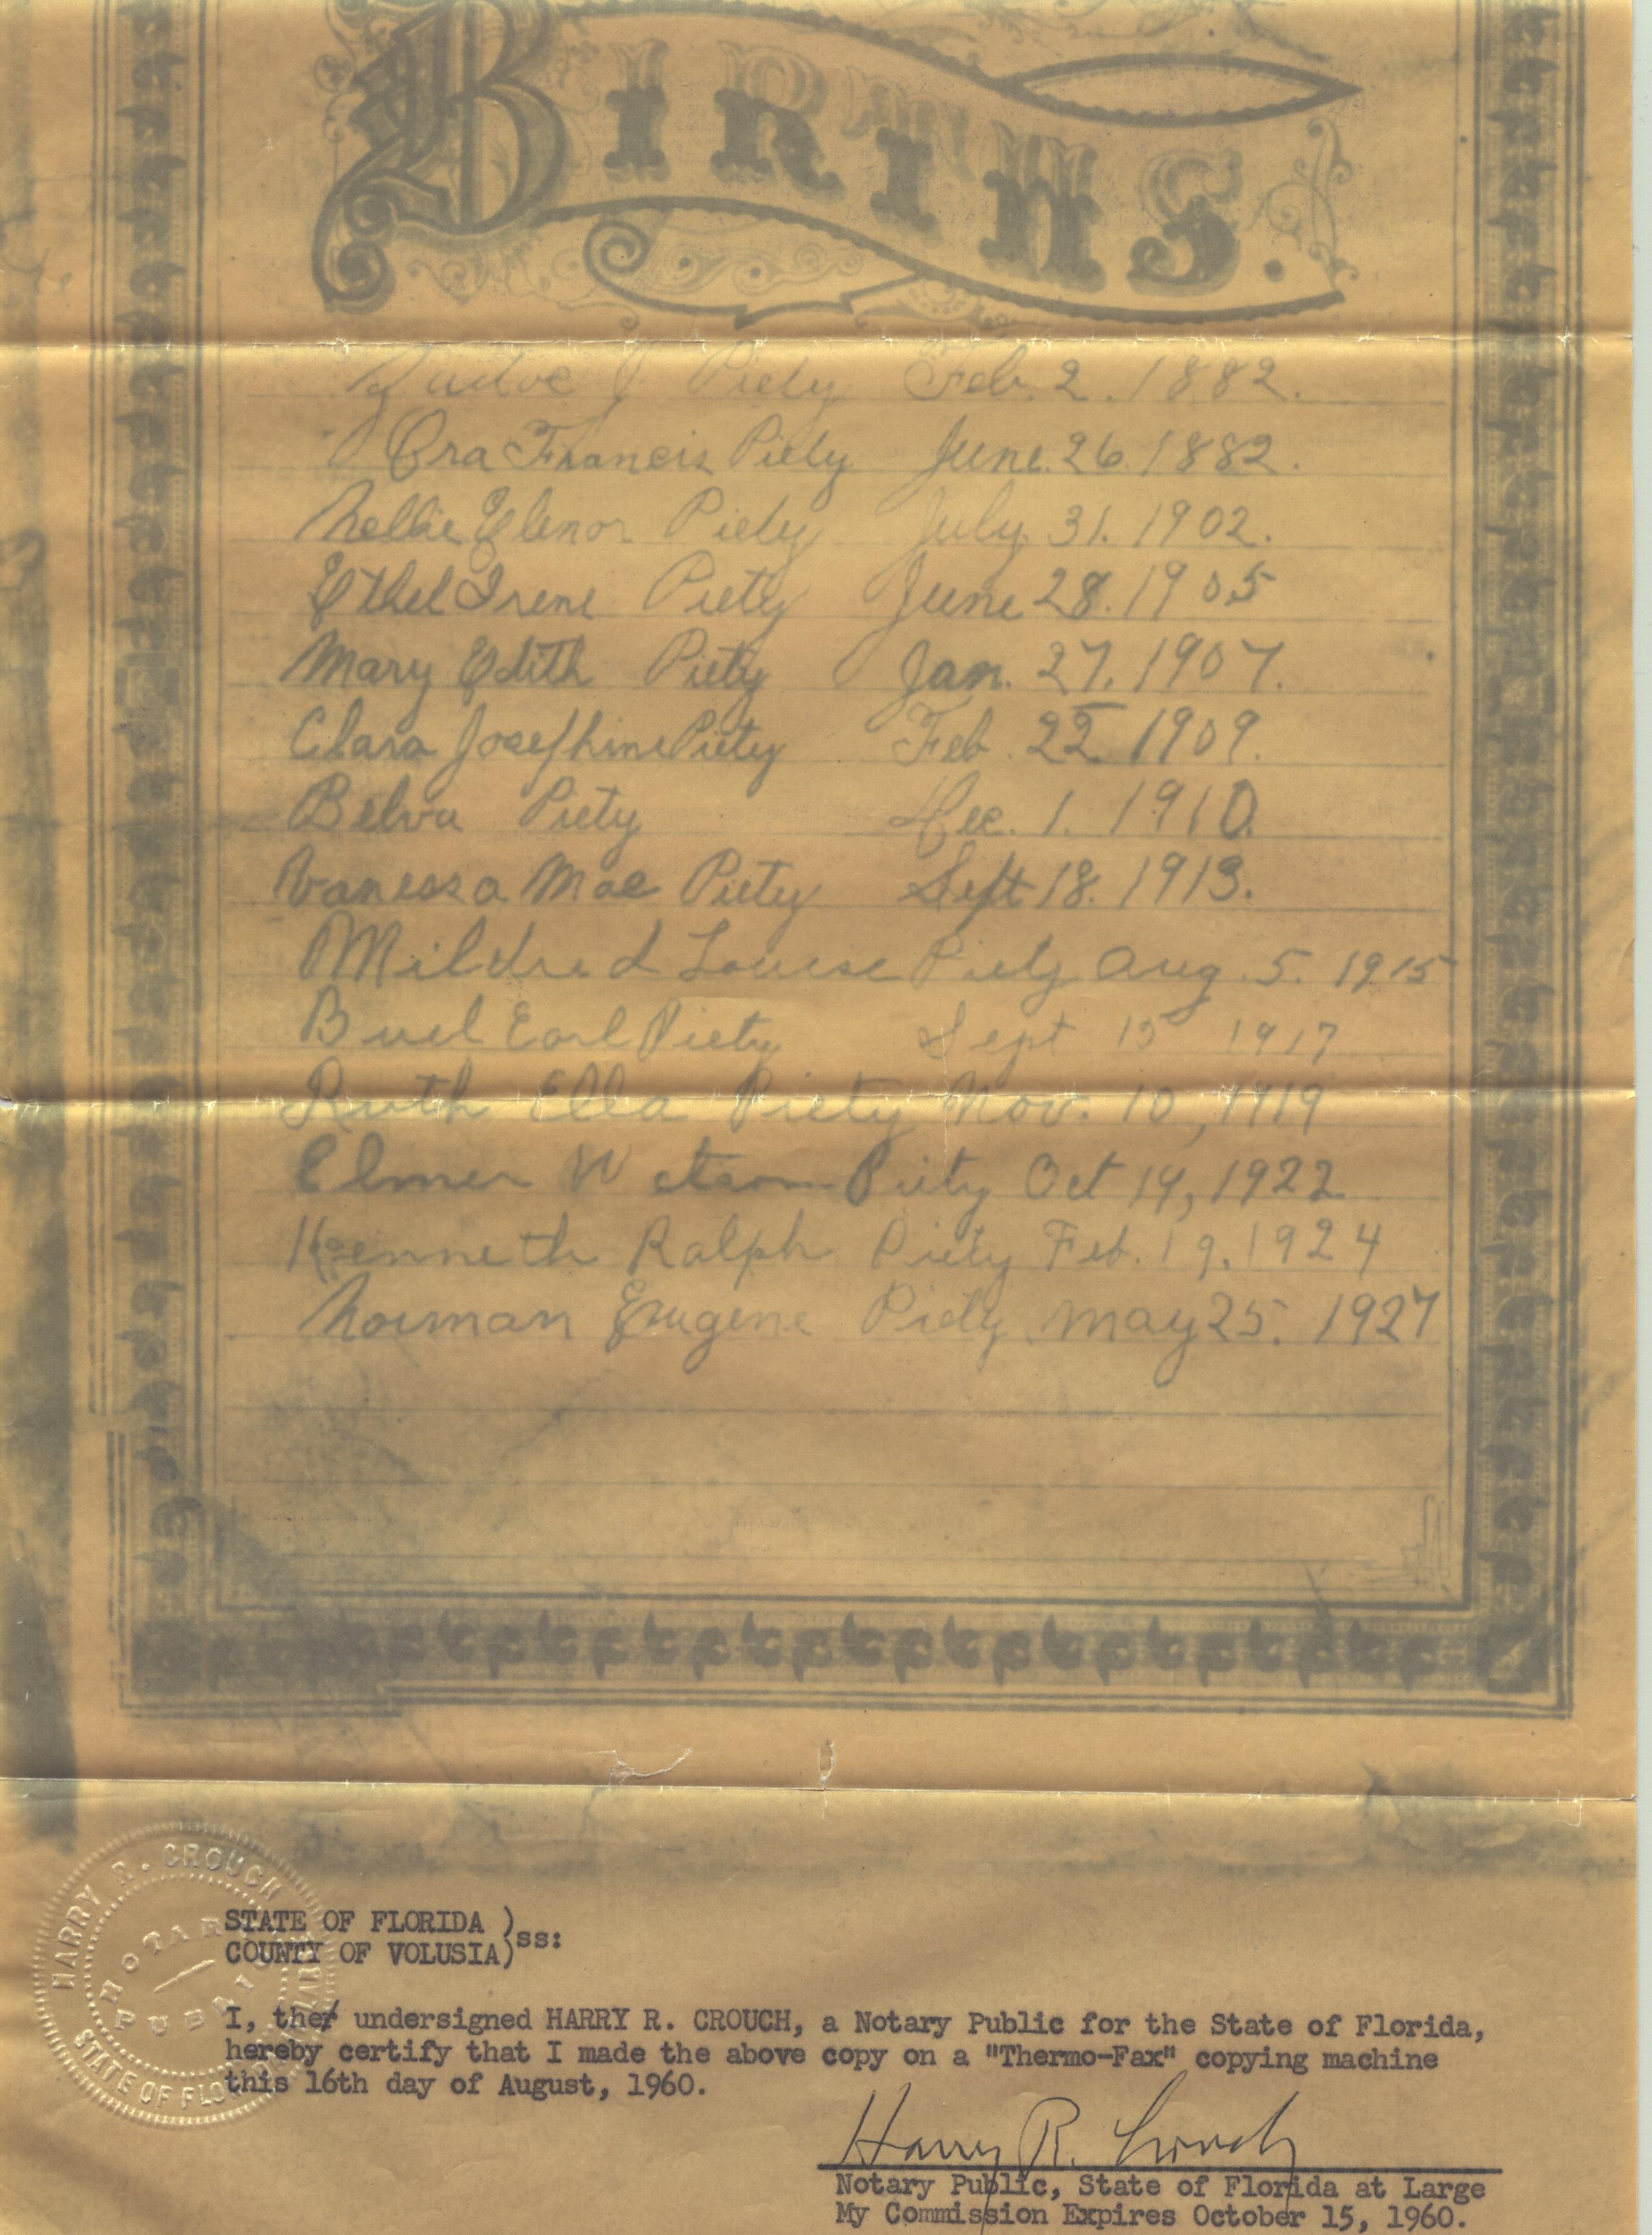 BIRTHS.
Piety Feb. 2. 1882.
Ora Francis Piety June. 26. 1882.
Nellie Elenor Piety July. 31. 1902.
Ethel Irene Piety June 28. 1905
Mary Edith Piety Jan. 27. 1907.
Clara Josephine Piety Feb. 22 1909.
Belva Piety Dec. 1. 1910.
Vanessa Mae Piety Sept 18. 1913.
Mildred Louise Piety Aug. 5. 1915
Buel Earl Piety Sept 15 1917
Ruth Ella Piety Nov. 10, 1919
Elmer Piety Oct 19, 1922
Kenneth Ralph Piety Feb. 19. 1924
Norman Eugene Piety May 25. 1927
HARRY R. CROUCH
NOTARY
PUBLIC
STATE OF FLORIDA
STATE OF FLORIDA )
COUNTY OF VOLUSIA) ss:
I, the undersigned HARRY R. CROUCH, a Notary Public for the State of Florida,
hereby certify that I made the above copy on a "Thermo-Fax" copying machine
this 16th day of August, 1960.
Harry R. Crouch
Notary Public, State of Florida at Large
My Commission Expires October 15, 1960.